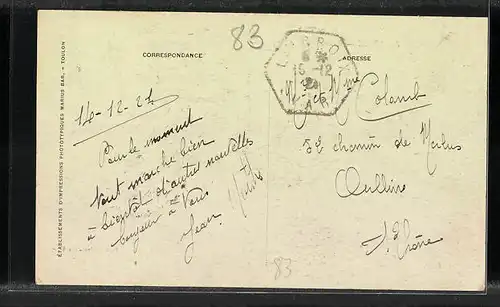 83
CORRESPONDANCE
ADRESSE
ÉTABLISSEMENTS D'IMPRESSIONS PHOTOTYPIQUES MARIUS BAR. - TOULON
14-12-21
Pour le moment
tout marche bien
à bientôt d'autres nouvelles
bonjour à Tous
Jean
Mr et Mme Colomb
52 chemin de
Oullins
Rhône
83